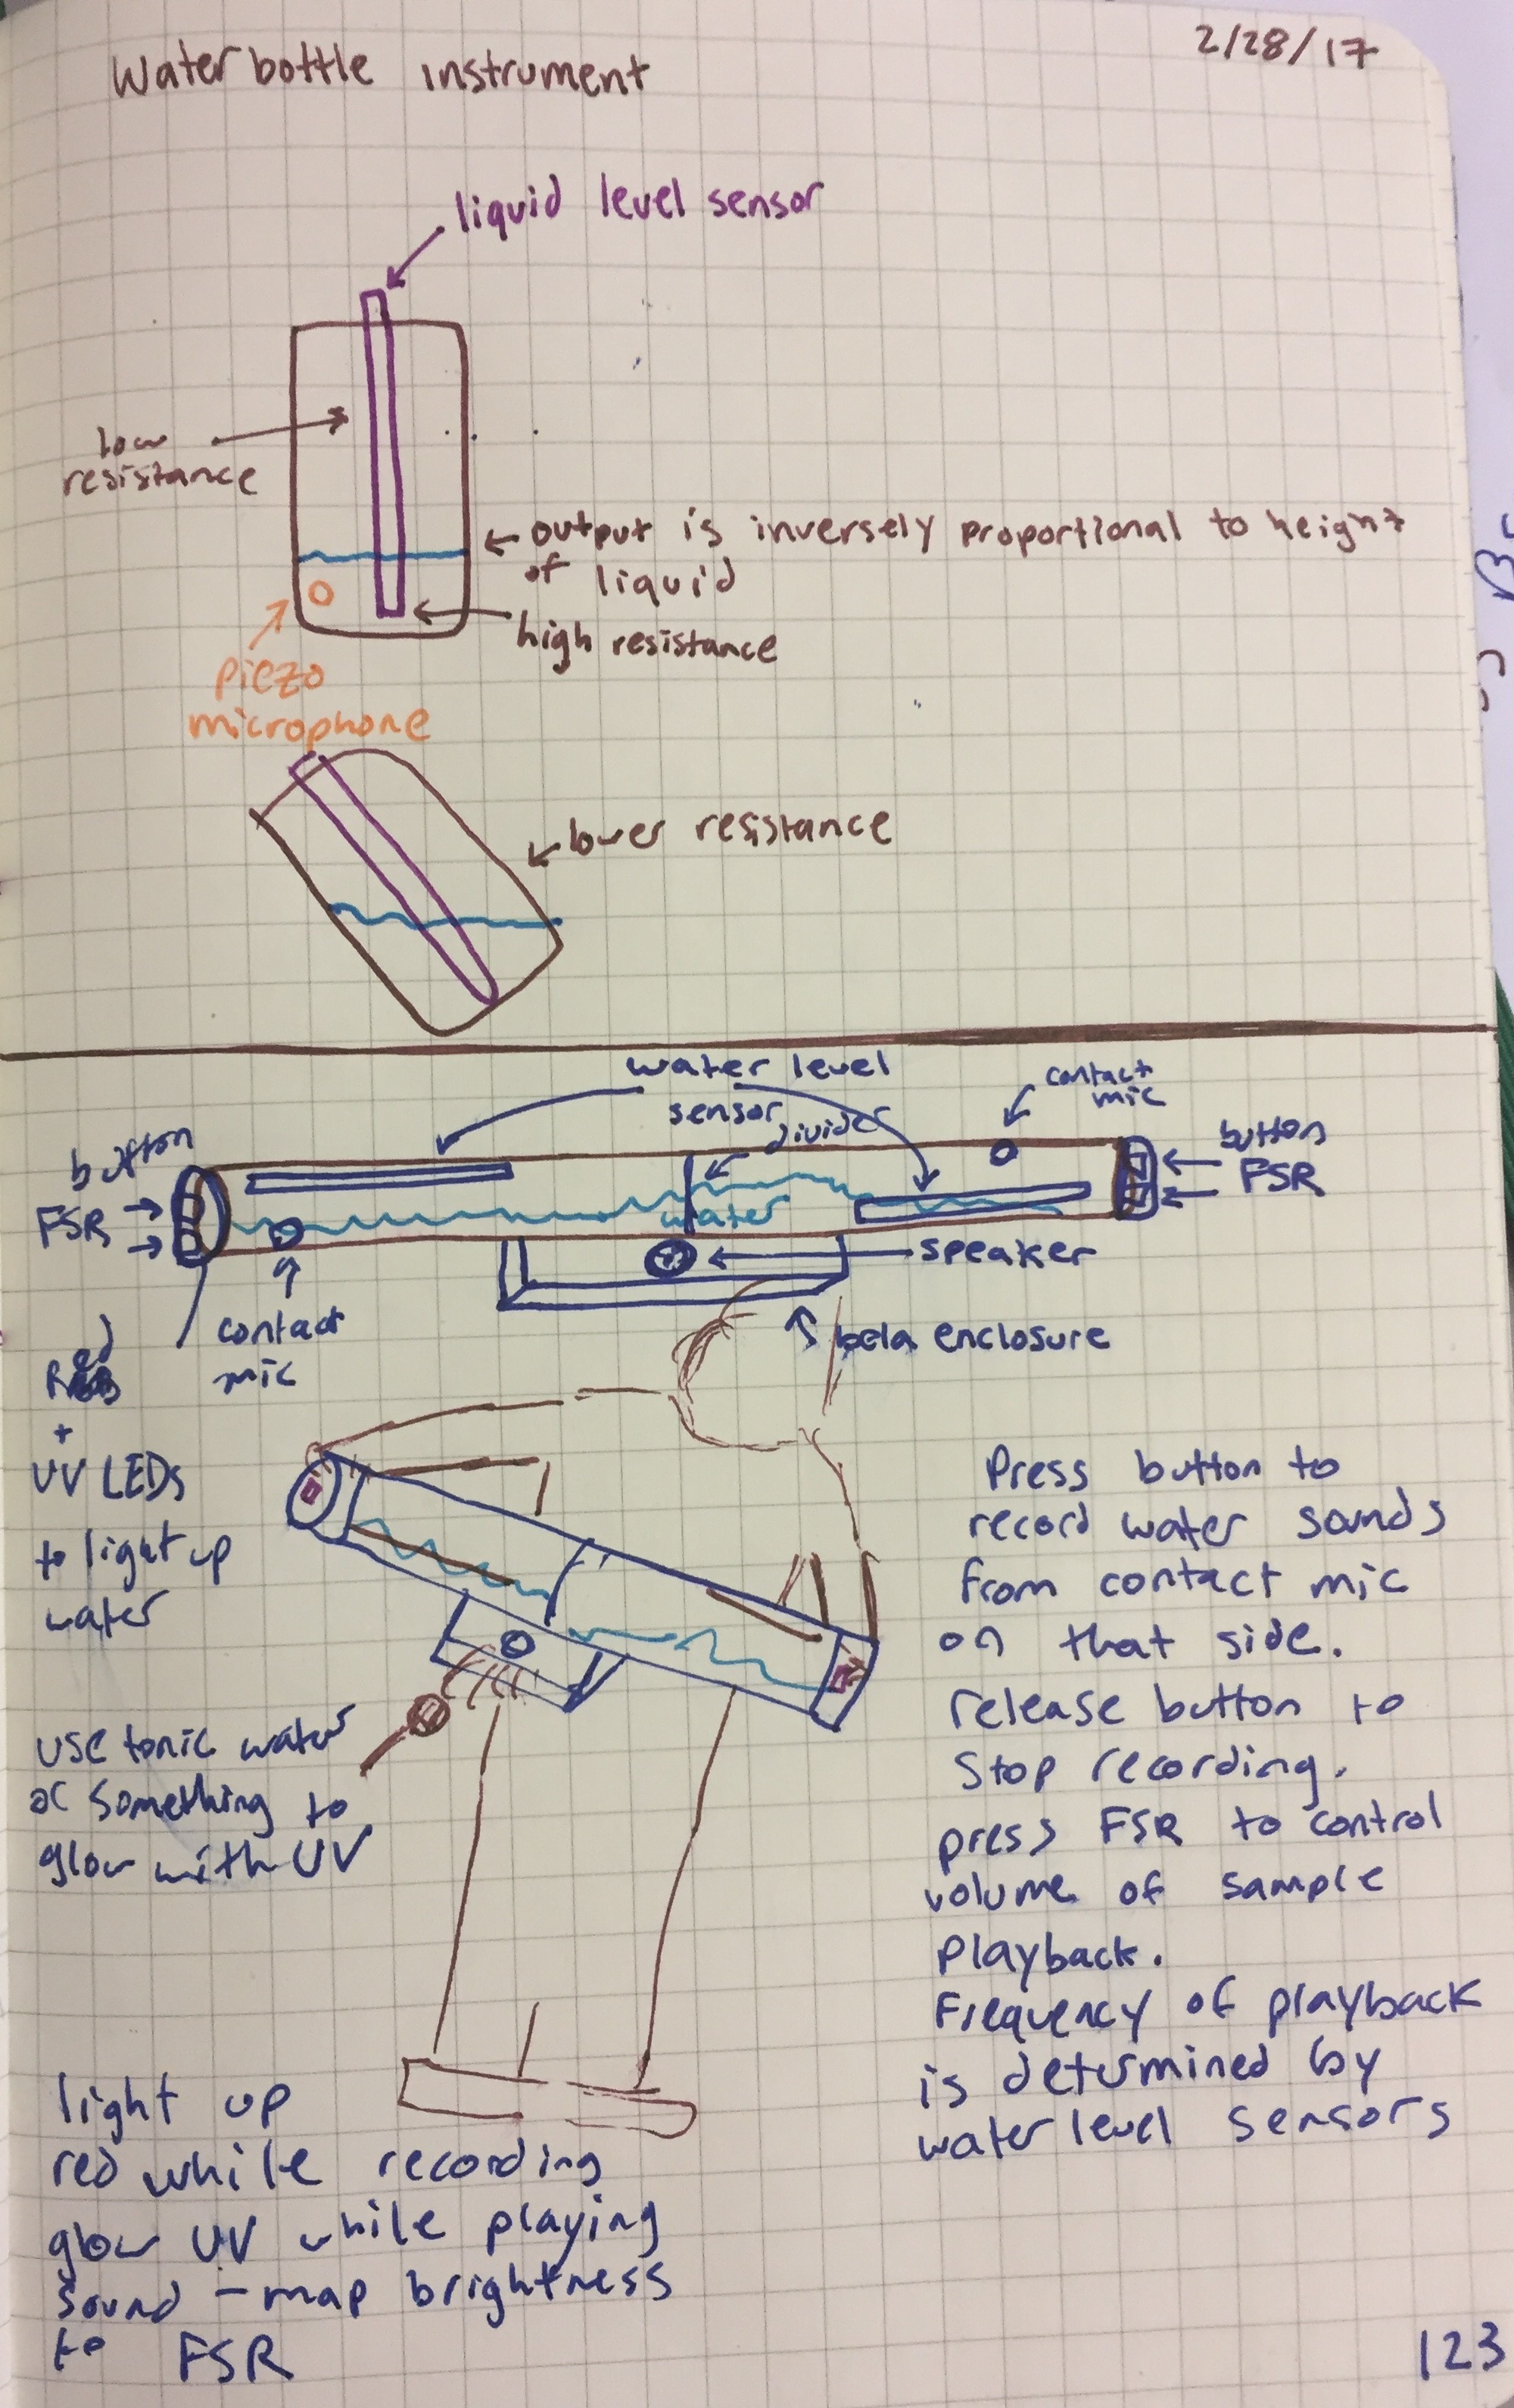 2/28/17
Water bottle instrument
liquid level sensor
low
resistance
output is inversely proportional to height
of liquid
high resistance
piezo
microphone
lower resistance
water level
sensor
divider
contact
mic
button
FSR
button
FSR
water
speaker
contact
mic
bela enclosure
Red
+
UV LEDs
to light up
water
Press button to
record water sounds
from contact mic
on that side.
release button to
stop recording.
press FSR to control
volume of sample
playback.
Frequency of playback
is determined by
water level sensors
use tonic water
or something to
glow with UV
light up
red while recording
glow UV while playing
sound - map brightness
to FSR
123